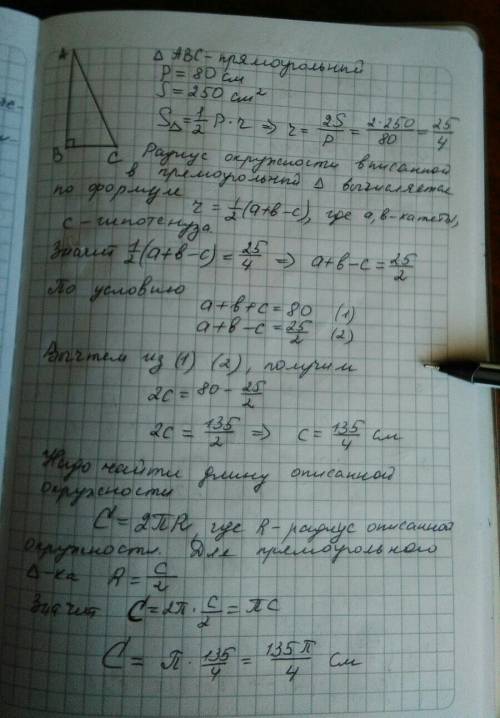 A
B
C
Δ ABC - прямоугольный
P = 80 см
S = 250 см²
S_Δ = 1/2 P · r ⇒ r = 2S/P = 2·250/80 = 25/4
Радиус окружности вписанной
в прямоугольный Δ вычисляется
по формуле
r = 1/2 (a+в-c), где a, в - катеты,
c - гипотенуза.
Значит 1/2 (a+в-c) = 25/4 ⇒ a+в-c = 25/2
По условию
a+в+c = 80 (1)
a+в-c = 25/2 (2)
Вычтем из (1) (2), получим
2c = 80 - 25/2
2c = 135/2 ⇒ c = 135/4 см
Надо найти длину описанной
окружности
C = 2πR, где R - радиус описанной
окружности. Для прямоугольного
Δ-ка R = c/2
Значит C = 2π · c/2 = πc
C = π · 135/4 = 135π/4 см